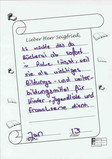 Lieber Herr Seigfried,
Ich möchte das die
Bücherei da sofort
in Ruhe lässt, weil
sie ein wichtiges
Bildungs- und weiter-
bildungsmittel für
Kinder, Jugendliche und
Erwachsene dient.
13